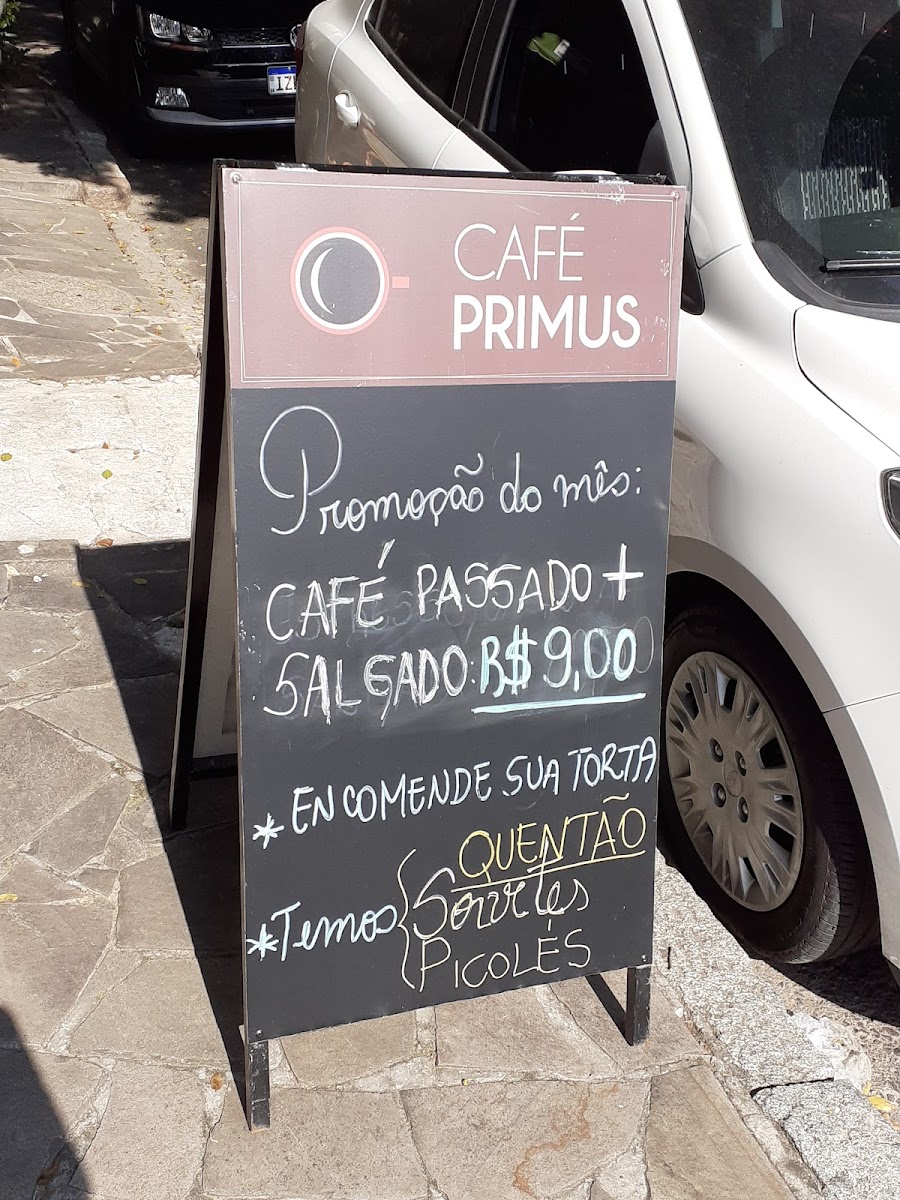 CAFÉ
PRIMUS
Promoção do mês:
CAFÉ PASSADO +
SALGADO: R$ 9,00
* ENCOMENDE SUA TORTA
QUENTÃO
*Temos { Sorvetes
PICOLÉS